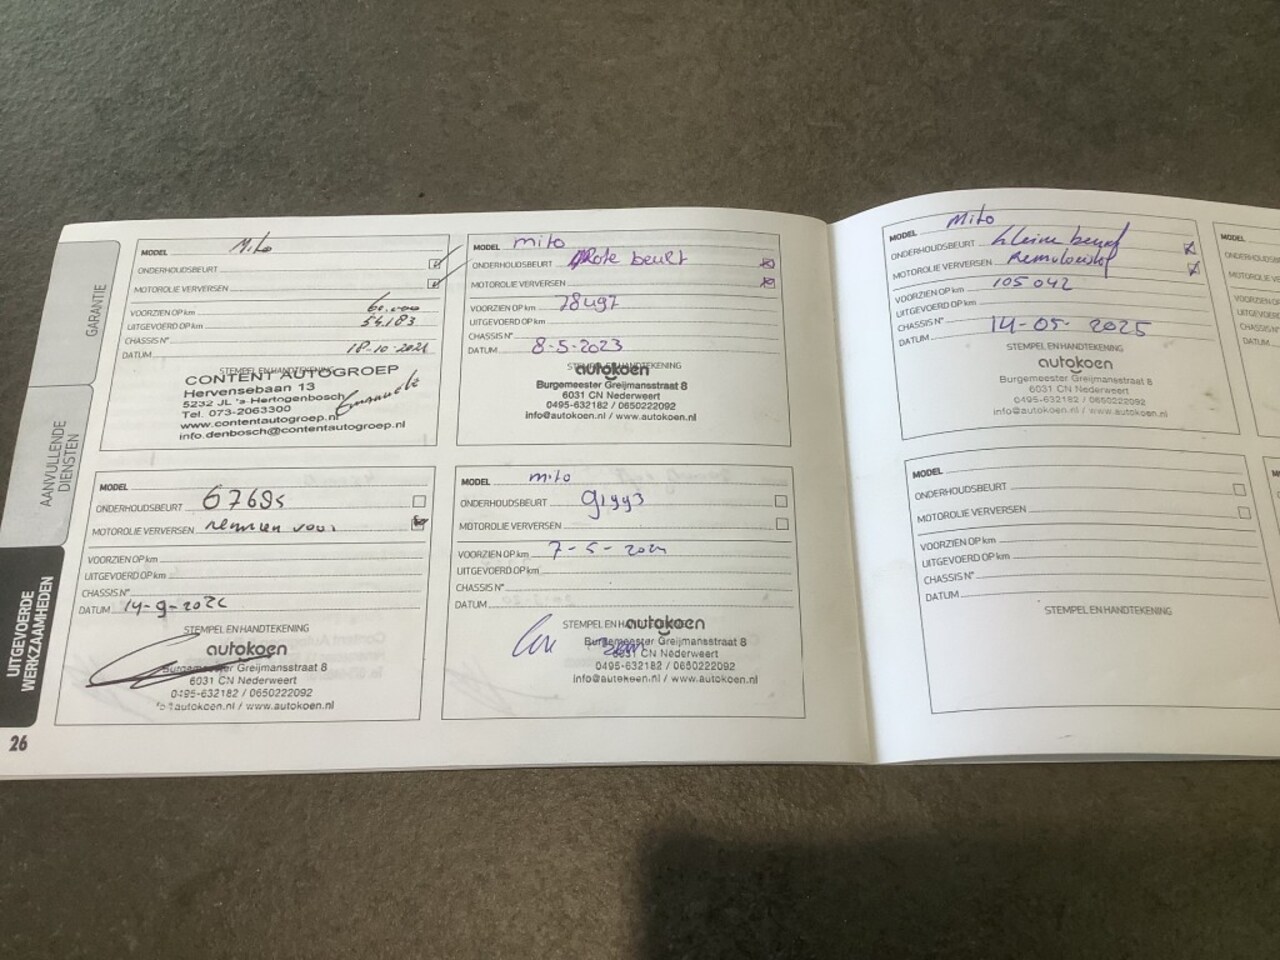 GARANTIE
AANVULLENDE
DIENSTEN
UITGEVOERDE
WERKZAAMHEDEN
26
MODEL Mito
ONDERHOUDSBEURT
MOTOROLIE VERVERSEN
VOORZIEN OP km 60.000
UITGEVOERD OP km 54.183
CHASSIS N°
DATUM 18-10-2021
STEMPEL EN HANDTEKENING
CONTENT AUTOGROEP
Hervensebaan 13
5232 JL 's-Hertogenbosch
Tel. 073-2063300
www.contentautogroep.nl
info.denbosch@contentautogroep.nl
MODEL mito
ONDERHOUDSBEURT gRote beurt
MOTOROLIE VERVERSEN
VOORZIEN OP km 78497
UITGEVOERD OP km
CHASSIS N°
DATUM 8-5-2023
STEMPEL EN HANDTEKENING
autokoen
Burgemeester Greijmansstraat 8
6031 CN Nederweert
0495-632182 / 0650222092
info@autokoen.nl / www.autokoen.nl
MODEL
ONDERHOUDSBEURT 67695
MOTOROLIE VERVERSEN remmen voor
VOORZIEN OP km
UITGEVOERD OP km
CHASSIS N°
DATUM 14-9-2022
STEMPEL EN HANDTEKENING
autokoen
Burgemeester Greijmansstraat 8
6031 CN Nederweert
0495-632182 / 0650222092
info@autokoen.nl / www.autokoen.nl
MODEL mito
ONDERHOUDSBEURT 91993
MOTOROLIE VERVERSEN
VOORZIEN OP km 7-5-2024
UITGEVOERD OP km
CHASSIS N°
DATUM
STEMPEL EN HANDTEKENING
autokoen
Burgemeester Greijmansstraat 8
6031 CN Nederweert
0495-632182 / 0650222092
info@autokoen.nl / www.autokoen.nl
MODEL Mito
ONDERHOUDSBEURT kleine beurt
MOTOROLIE VERVERSEN Remvloeistof
VOORZIEN OP km 105042
UITGEVOERD OP km
CHASSIS N°
DATUM 14-05-2025
STEMPEL EN HANDTEKENING
autokoen
Burgemeester Greijmansstraat 8
6031 CN Nederweert
0495-632182 / 0650222092
info@autokoen.nl / www.autokoen.nl
MODEL
ONDERHOUDSBEURT
MOTOROLIE VERVERSEN
VOORZIEN OP km
UITGEVOERD OP km
CHASSIS N°
DATUM
STEMPEL EN HANDTEKENING
MODEL